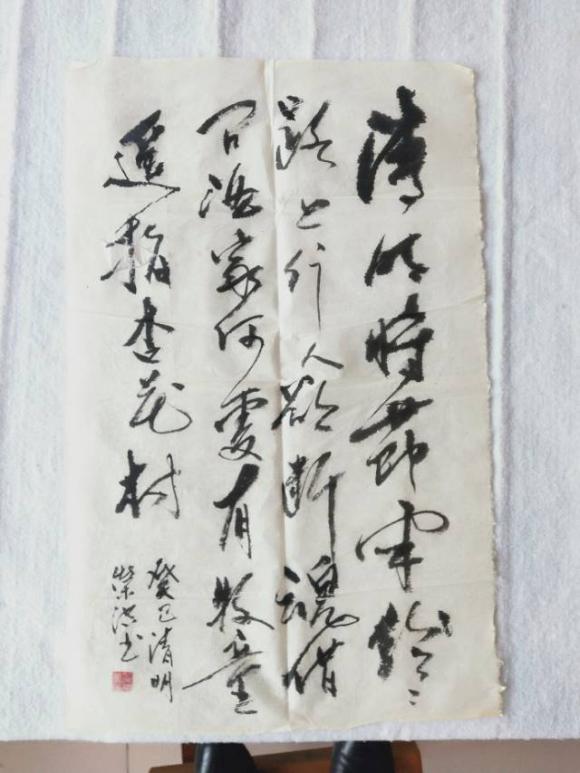 清明時節雨纷〻
路上行人欲断魂借
问酒家何處有牧童
遥指杏花村
癸巳清明
书